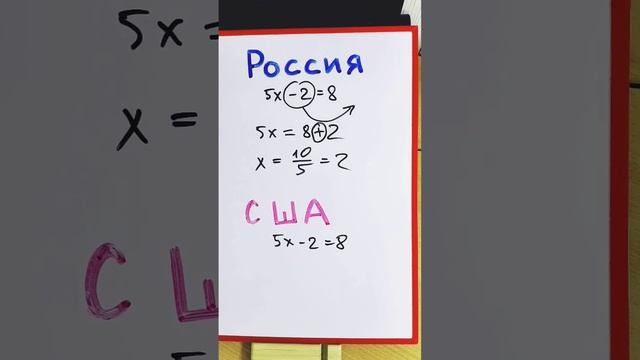 Россия
5x-2=8
5x = 8+2
x = 10/5 = 2
США
5x-2=8